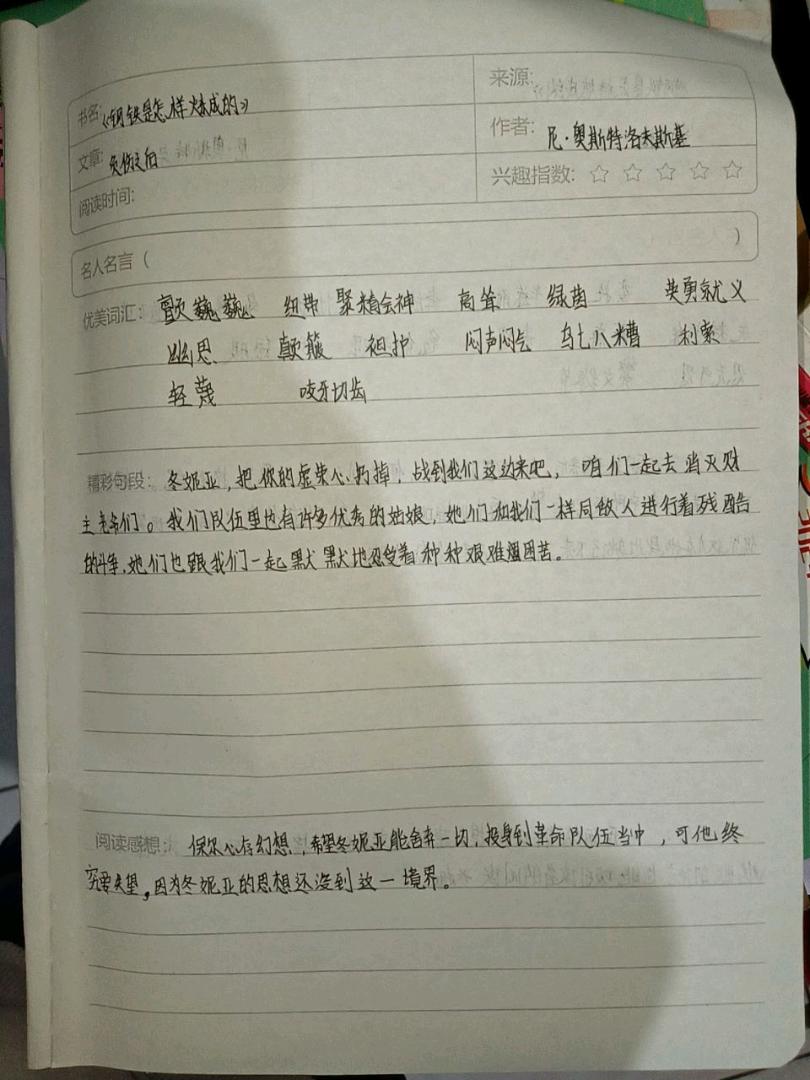 书名:《钢铁是怎样炼成的》
来源:
作者: 尼·奥斯特洛夫斯基
文章: 负伤之后
兴趣指数: ☆ ☆ ☆ ☆ ☆
阅读时间:
名人名言 ( )
优美词汇: 颤巍巍 纽带 聚精会神 高耸 绿茵 英勇就义
幽思 颠簸 袒护 闷声闷气 乌七八糟 利索
轻蔑 咬牙切齿
精彩句段: 冬妮亚,把你的虚荣心扔掉,战到我们这边来吧, 咱们一起去消灭财
主老爷们。我们队伍里也有许多优秀的姑娘,她们和我们一样同敌人进行着残酷
的斗争,她们也跟我们一起默默地忍受着种种艰难困苦。
阅读感想: 保尔心存幻想,希望冬妮亚能舍弃一切,投身到革命队伍当中,可他终
究要失望,因为冬妮亚的思想还没到这一境界。